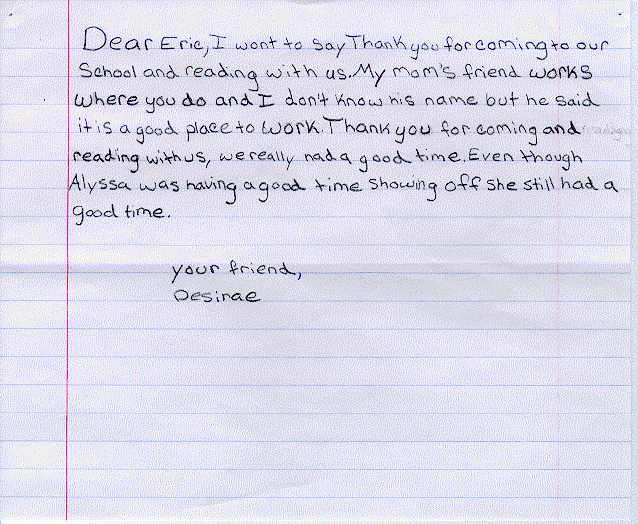 Dear Eric, I wont to say Thank you for coming to our
School and reading with us. My mom's friend works
where you do and I don't know his name but he said
it is a good place to work. Thank you for coming and
reading with us, we really had a good time. Even though
Alyssa was having a good time showing off she still had a
good time.
your friend,
Desirae